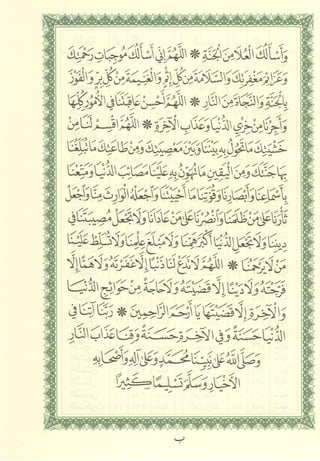 وَأَسْأَلُكَ الْعُلَا مِنَ الْجَنَّةِ ❋ اللَّهُمَّ إِنِّي أَسْأَلُكَ مُوجِبَاتِ رَحْمَتِكَ
وَعَزَائِمَ مَغْفِرَتِكَ وَالسَّلَامَةَ مِنْ كُلِّ إِثْمٍ وَالْغَنِيمَةَ مِنْ كُلِّ بِرٍّ وَالْفَوْزَ
بِالْجَنَّةِ وَالنَّجَاةَ مِنَ النَّارِ ❋ اللَّهُمَّ أَحْسِنْ عَاقِبَتَنَا فِي الْأُمُورِ كُلِّهَا
وَأَجِرْنَا مِنْ خِزْيِ الدُّنْيَا وَعَذَابِ الْآخِرَةِ ❋ اللَّهُمَّ اقْسِمْ لَنَا مِنْ
خَشْيَتِكَ مَا تَحُولُ بِهِ بَيْنَنَا وَبَيْنَ مَعْصِيَتِكَ وَمِنْ طَاعَتِكَ مَا تُبَلِّغُنَا
بِهَا جَنَّتَكَ وَمِنَ الْيَقِينِ مَا تُهَوِّنُ بِهِ عَلَيْنَا مَصَائِبَ الدُّنْيَا وَمَتِّعْنَا
بِأَسْمَاعِنَا وَأَبْصَارِنَا وَقُوَّتِنَا مَا أَحْيَيْتَنَا وَاجْعَلْهُ الْوَارِثَ مِنَّا وَاجْعَلْ
ثَأْرَنَا عَلَى مَنْ ظَلَمَنَا وَانْصُرْنَا عَلَى مَنْ عَادَانَا وَلَا تَجْعَلْ مُصِيبَتَنَا فِي
دِينِنَا وَلَا تَجْعَلِ الدُّنْيَا أَكْبَرَ هَمِّنَا وَلَا مَبْلَغَ عِلْمِنَا وَلَا تُسَلِّطْ عَلَيْنَا
مَنْ لَا يَرْحَمُنَا ❋ اللَّهُمَّ لَا تَدَعْ لَنَا ذَنْبًا إِلَّا غَفَرْتَهُ وَلَا هَمًّا إِلَّا
فَرَّجْتَهُ وَلَا دَيْنًا إِلَّا قَضَيْتَهُ وَلَا حَاجَةً مِنْ حَوَائِجِ الدُّنْيَا
وَالْآخِرَةِ إِلَّا قَضَيْتَهَا يَا أَرْحَمَ الرَّاحِمِينَ ❋ رَبَّنَا آتِنَا فِي
الدُّنْيَا حَسَنَةً وَفِي الْآخِرَةِ حَسَنَةً وَقِنَا عَذَابَ النَّارِ
وَصَلَّى اللَّهُ عَلَى نَبِيِّنَا مُحَمَّدٍ وَعَلَى آلِهِ وَأَصْحَابِهِ
الْأَخْيَارِ وَسَلَّمَ تَسْلِيمًا كَثِيرًا
ب